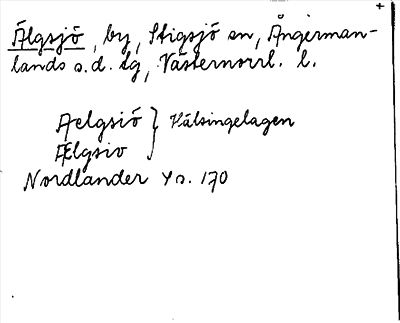 Älgsjö, by, Stigsjö sn, Ångerman-
lands s.d. tg, Västernorrl. l.
Aelgsiö } Hälsingelagen
Ælgsio
Nordlander Y s. 170